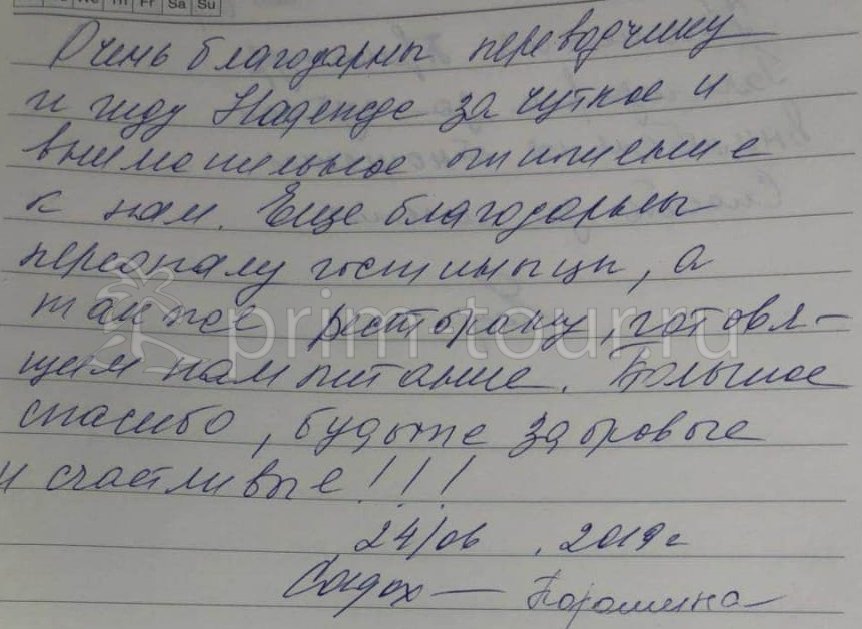 We Th Fr Sa Su
Очень благодарны переводчику
и гиду Надежде за чуткое и
внимательное отношение
к нам. Еще благодарны
персоналу гостиницы, а
также ресторану, готовя-
щим нам питание. Большое
спасибо, будьте здоровые
и счастливые!!!
24/06. 2019г
prim-tour.ru